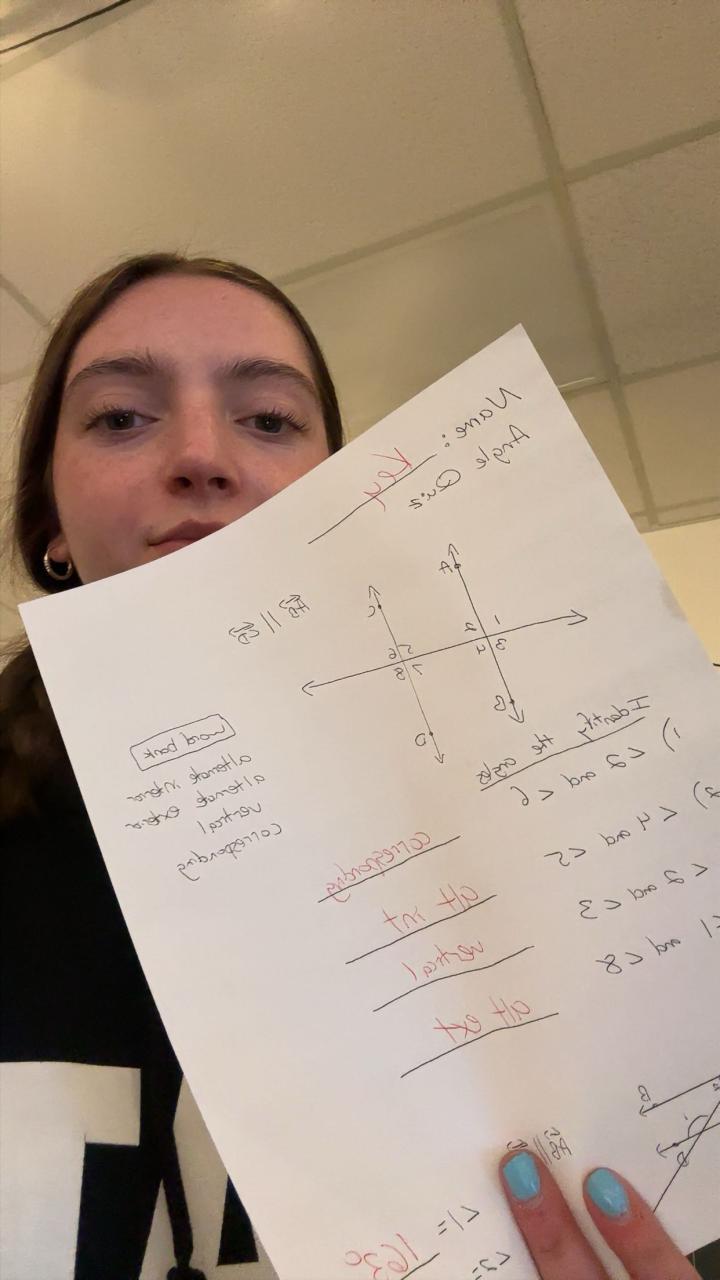 Name: Key
Angle Quiz
A
C
1
2
3
4
5
6
7
8
B
D
AB || CD
Identify the angles
1) <2 and <6 corresponding
2) <4 and <5 alt int
<2 and <3 vertical
<1 and <8 alt ext
word bank
alternate interior
alternate exterior
vertical
corresponding
B
D
1
AB ||
<1= 163°
<2=